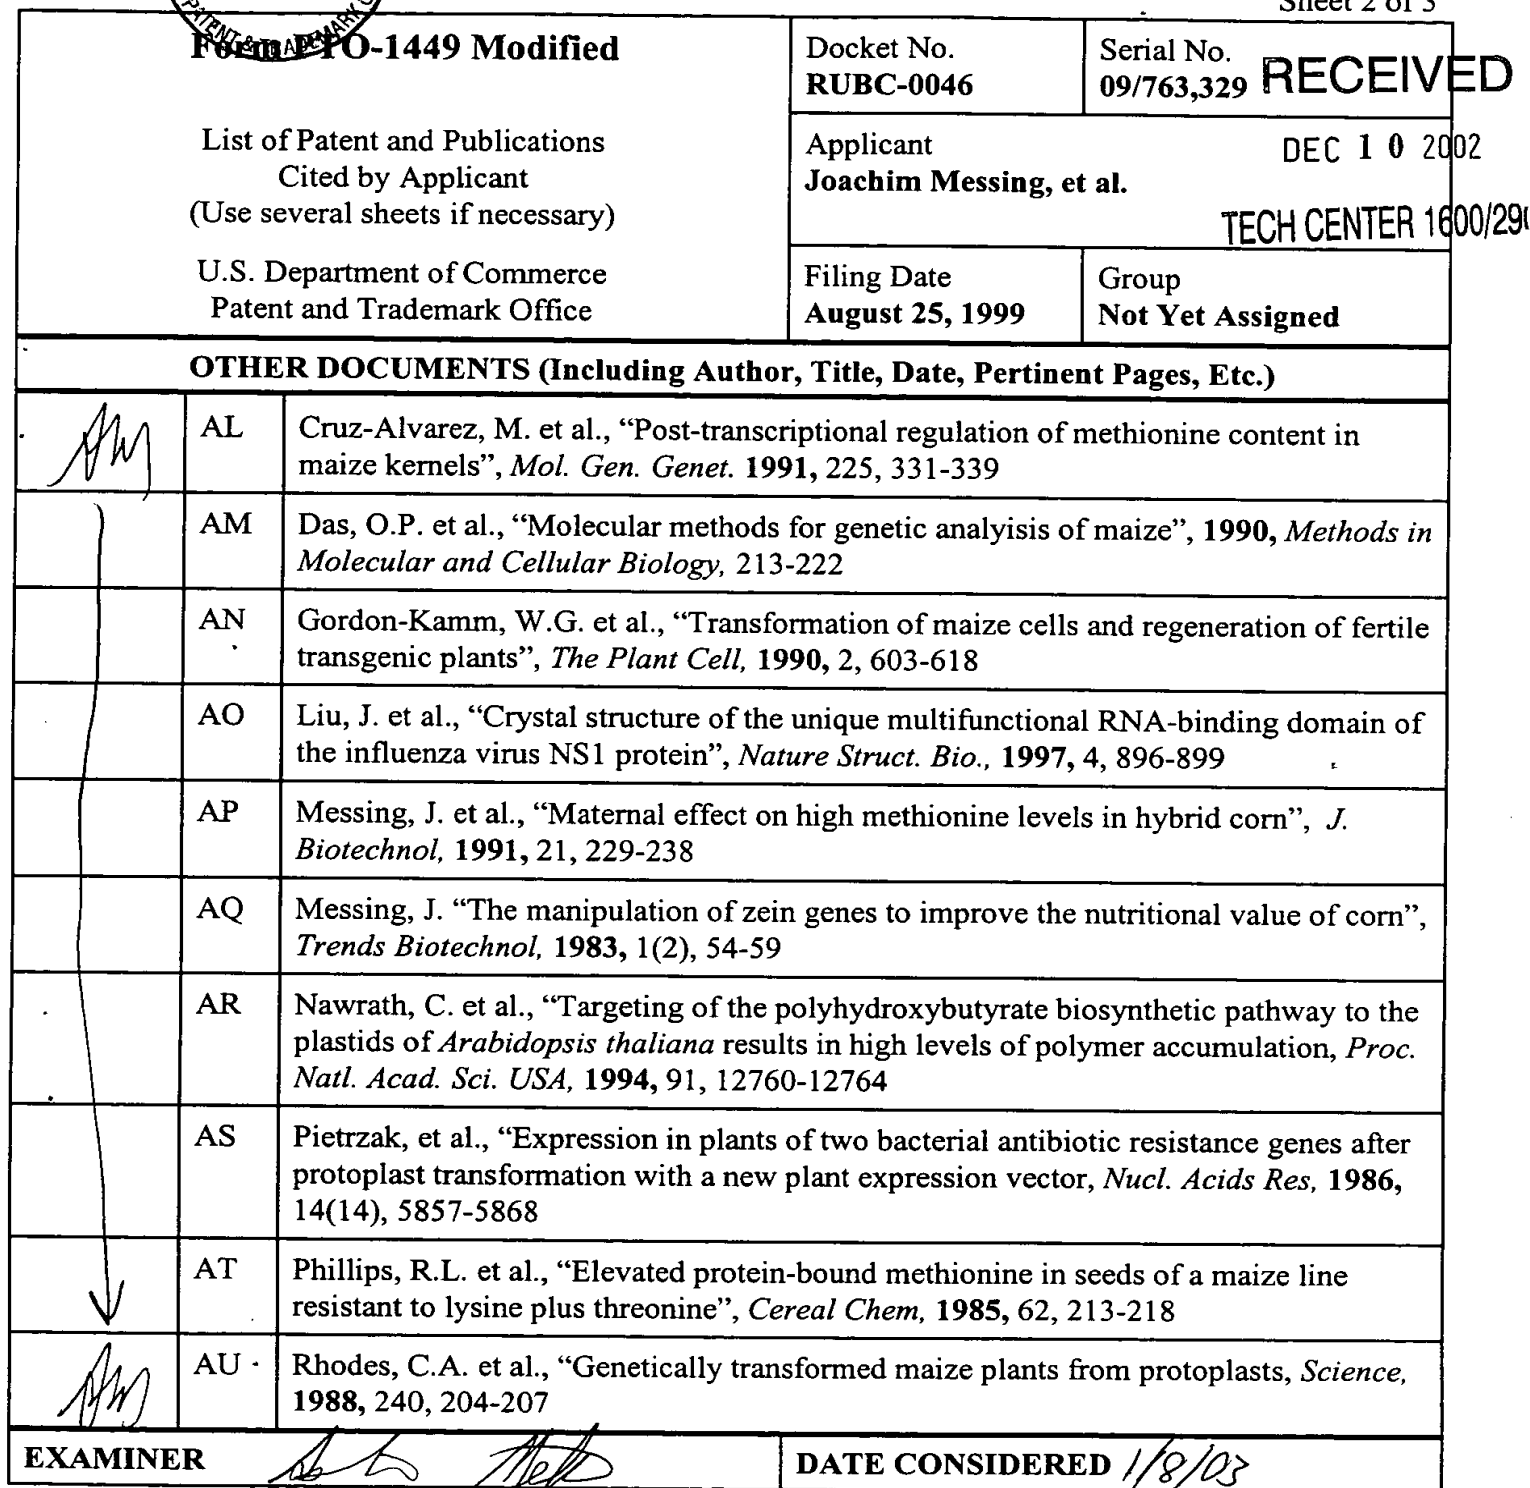 Sheet 2 of 3
PATENT & TRADEMARK
Form PTO-1449 Modified
Docket No.
RUBC-0046
Serial No.
09/763,329
RECEIVED
List of Patent and Publications
Cited by Applicant
(Use several sheets if necessary)
Applicant
Joachim Messing, et al.
DEC 10 2002
TECH CENTER 1600/290
U.S. Department of Commerce
Patent and Trademark Office
Filing Date
August 25, 1999
Group
Not Yet Assigned
OTHER DOCUMENTS (Including Author, Title, Date, Pertinent Pages, Etc.)
AL
Cruz-Alvarez, M. et al., “Post-transcriptional regulation of methionine content in
maize kernels”, Mol. Gen. Genet. 1991, 225, 331-339
AM
Das, O.P. et al., “Molecular methods for genetic analyisis of maize”, 1990, Methods in
Molecular and Cellular Biology, 213-222
AN
Gordon-Kamm, W.G. et al., “Transformation of maize cells and regeneration of fertile
transgenic plants”, The Plant Cell, 1990, 2, 603-618
AO
Liu, J. et al., “Crystal structure of the unique multifunctional RNA-binding domain of
the influenza virus NS1 protein”, Nature Struct. Bio., 1997, 4, 896-899
AP
Messing, J. et al., “Maternal effect on high methionine levels in hybrid corn”, J.
Biotechnol, 1991, 21, 229-238
AQ
Messing, J. “The manipulation of zein genes to improve the nutritional value of corn”,
Trends Biotechnol, 1983, 1(2), 54-59
AR
Nawrath, C. et al., “Targeting of the polyhydroxybutyrate biosynthetic pathway to the
plastids of Arabidopsis thaliana results in high levels of polymer accumulation, Proc.
Natl. Acad. Sci. USA, 1994, 91, 12760-12764
AS
Pietrzak, et al., “Expression in plants of two bacterial antibiotic resistance genes after
protoplast transformation with a new plant expression vector, Nucl. Acids Res, 1986,
14(14), 5857-5868
AT
Phillips, R.L. et al., “Elevated protein-bound methionine in seeds of a maize line
resistant to lysine plus threonine”, Cereal Chem, 1985, 62, 213-218
AU
Rhodes, C.A. et al., “Genetically transformed maize plants from protoplasts, Science,
1988, 240, 204-207
EXAMINER
DATE CONSIDERED 1/8/03